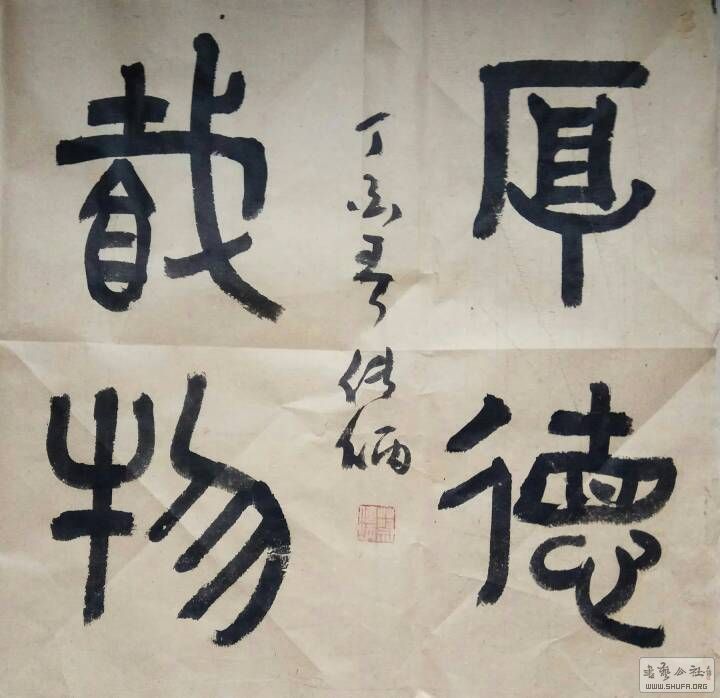 厚德
丁酉
炳
載物
書藝公社
WWW.SHUFA.ORG